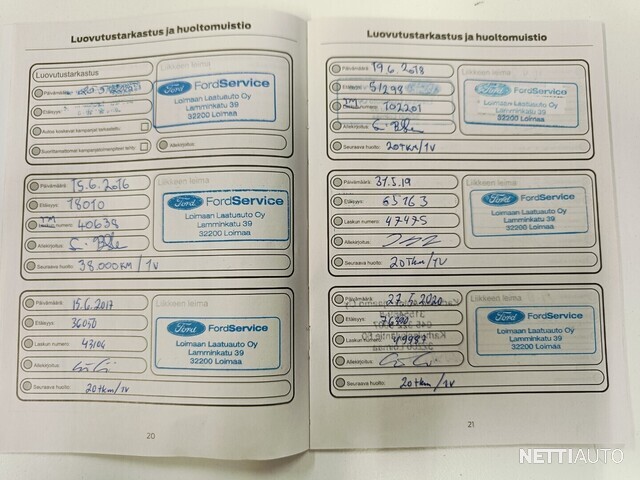 Luovutustarkastus ja huoltomuistio
Luovutustarkastus
Liikkeen leima
Päivämäärä
Etäisyys
Ford FordService
Loimaan Laatuauto Oy
Lamminkatu 39
32200 Loimaa
Allekirjoitus
Päivämäärä: 15.6.2016
Etäisyys: 18010
TM 40638
Allekirjoitus:
Seuraava huolto: 38.000KM / 1V
Liikkeen leima
Ford FordService
Loimaan Laatuauto Oy
Lamminkatu 39
32200 Loimaa
Päivämäärä: 15.6.2017
Etäisyys: 36050
Laskun numero: 43106
Allekirjoitus:
Seuraava huolto: 20tkm/1V
Liikkeen leima
Ford FordService
Loimaan Laatuauto Oy
Lamminkatu 39
32200 Loimaa
20
Luovutustarkastus ja huoltomuistio
Päivämäärä: 19.6.2018
Etäisyys: 51298
TM 102201
Allekirjoitus:
Seuraava huolto: 20tkm/1V
Ford FordService
Loimaan Laatuauto Oy
Lamminkatu 39
32200 Loimaa
Päivämäärä: 31.5.19
Etäisyys: 65163
Laskun numero: 47475
Allekirjoitus:
Seuraava huolto: 20TKM/1V
Liikkeen leima
Ford FordService
Loimaan Laatuauto Oy
Lamminkatu 39
32200 Loimaa
Päivämäärä: 27.5.2020
Etäisyys: 76300
Laskun numero: 49987
Allekirjoitus:
Seuraava huolto: 20tkm/1V
Liikkeen leima
Ford FordService
Loimaan Laatuauto Oy
Lamminkatu 39
32200 Loimaa
21
NETTIAUTO